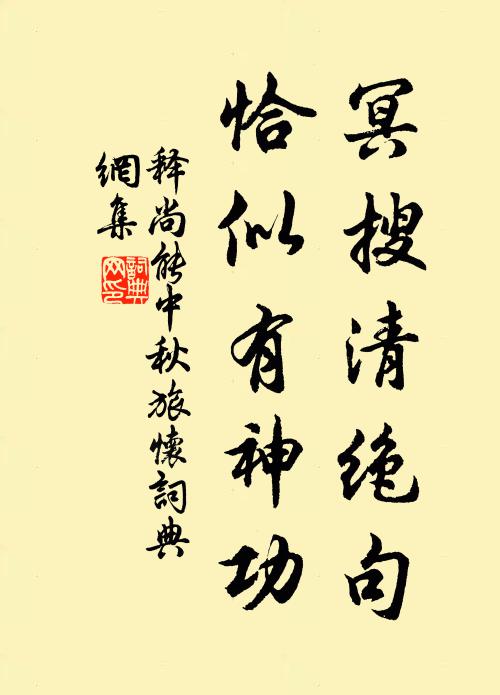 冥搜清绝句
恰似有神功
释尚能中秋旅懷詞典
網集
詞典
网印